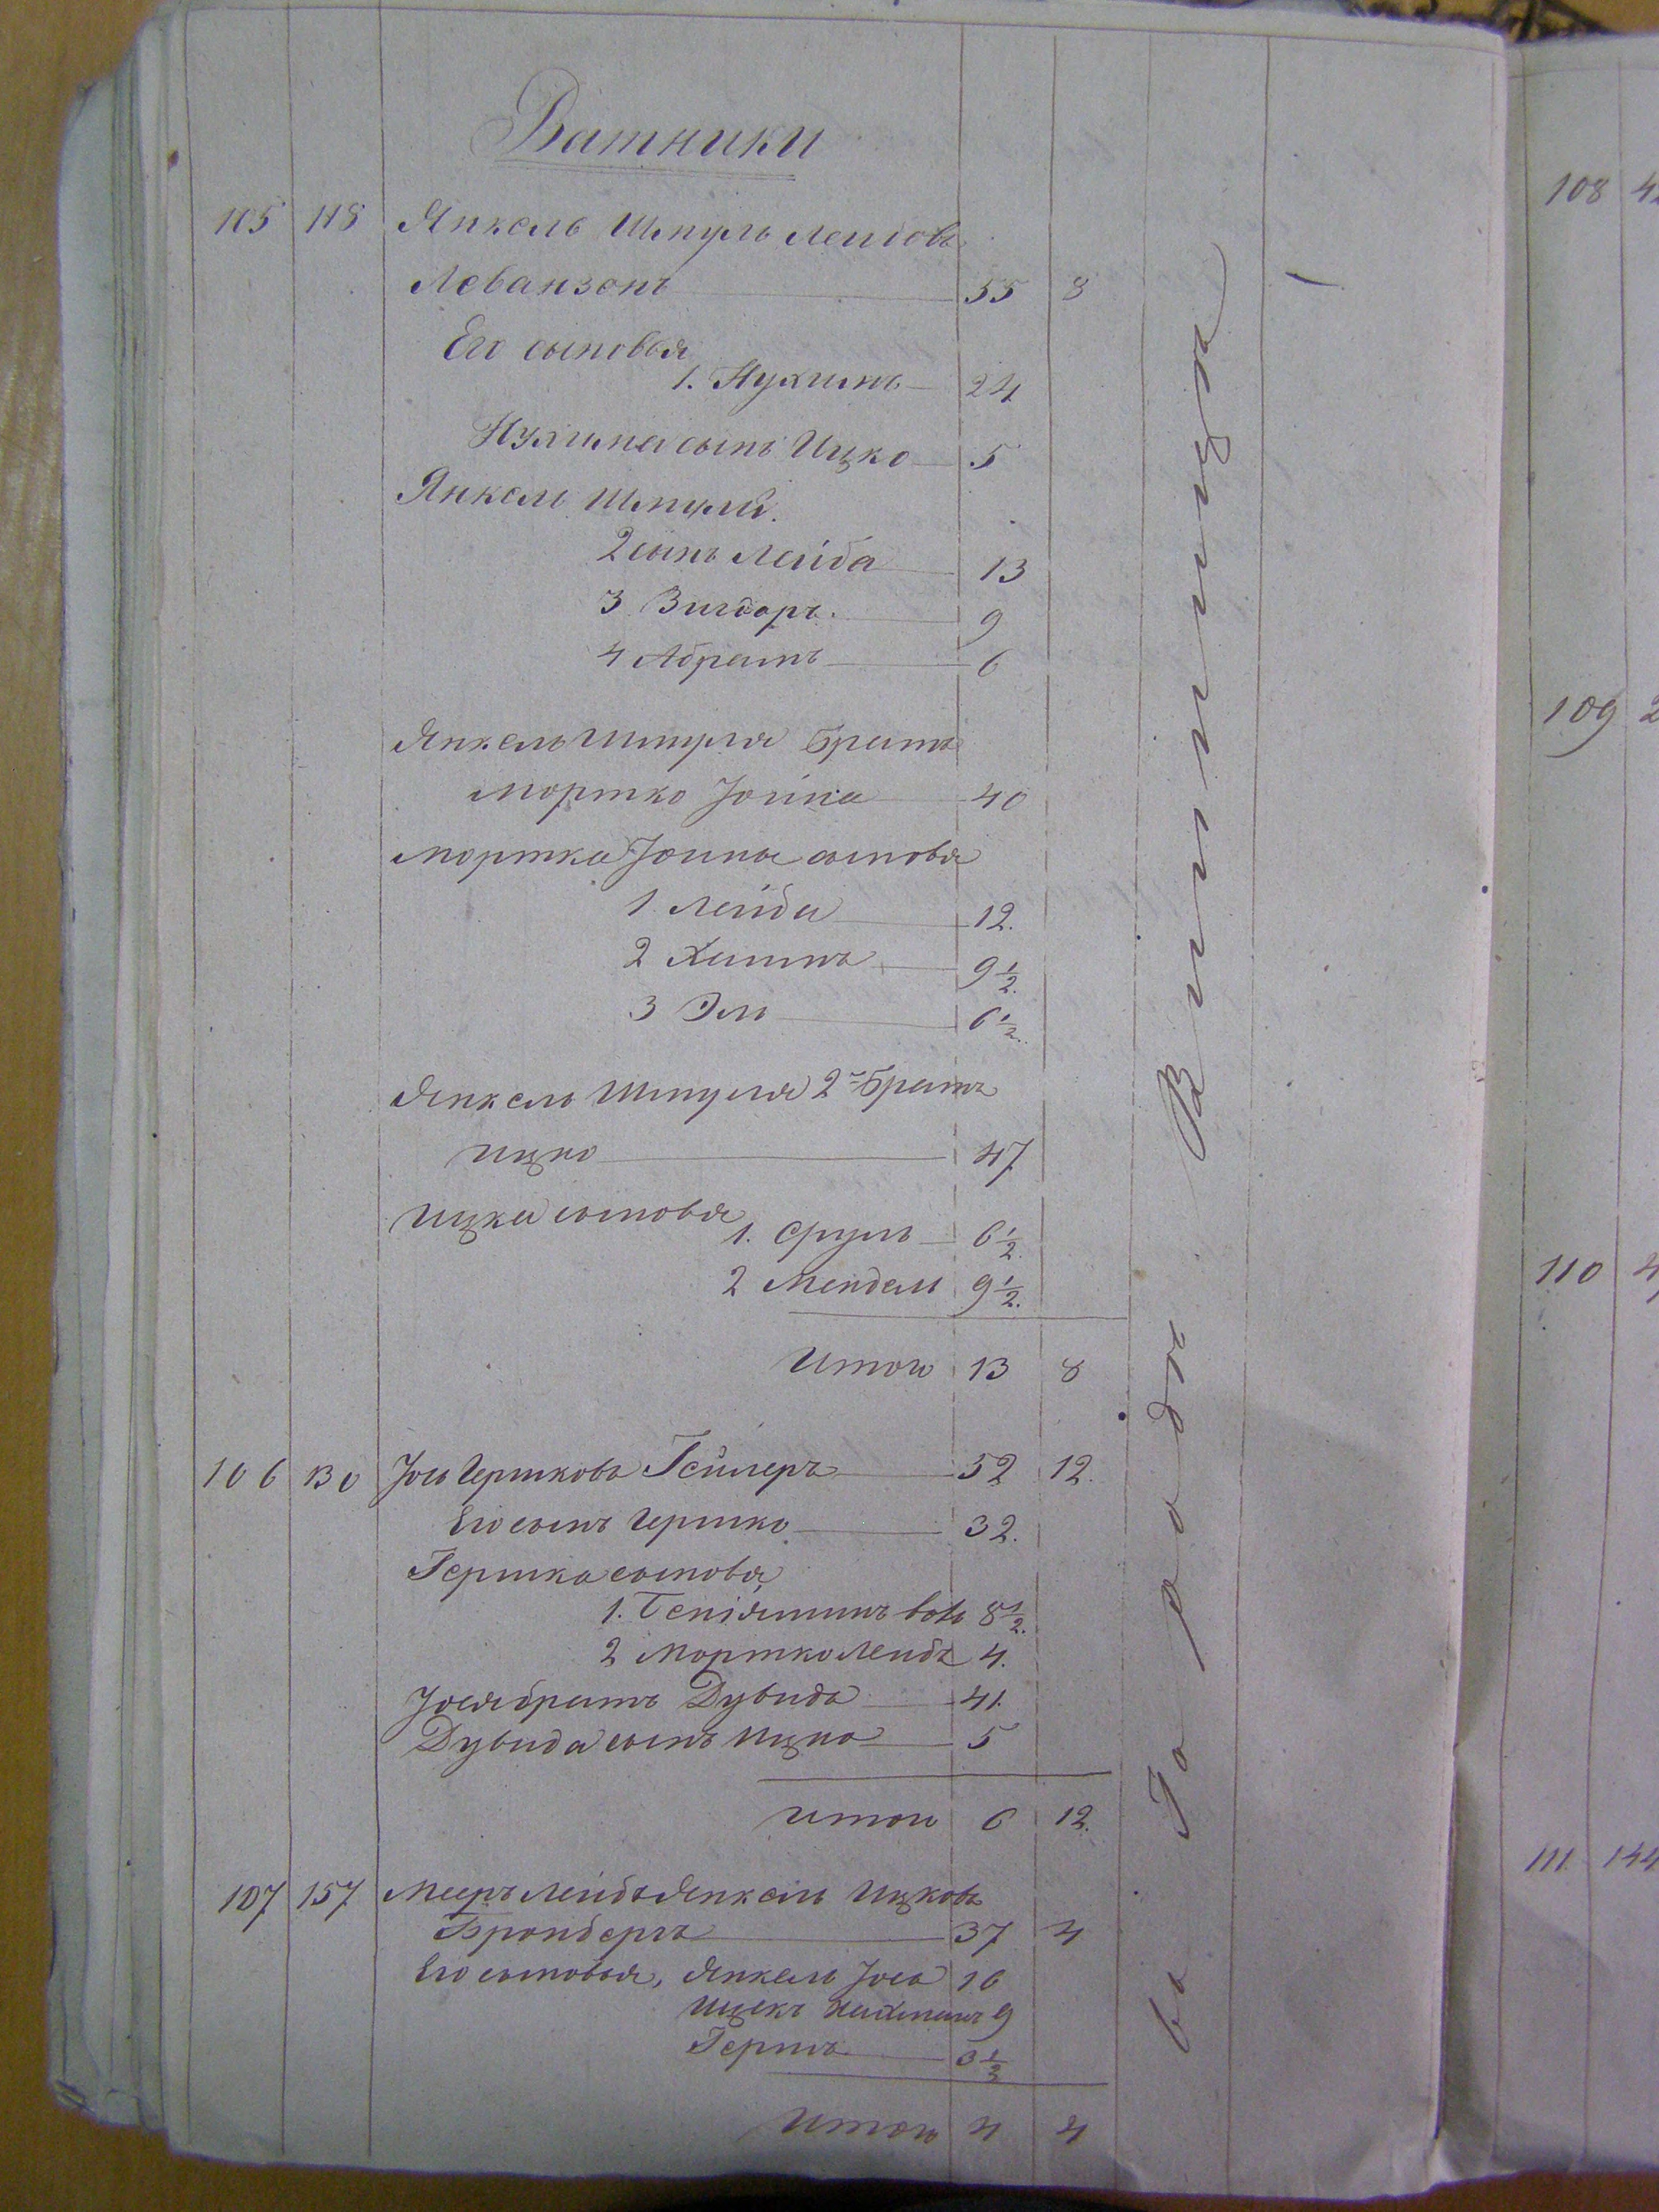 Ватники
105 118 Янкель Шмуль Лейбовъ
Леванзонъ 55 8
Его сыновья
1. Нухимъ 24
Нухима сынъ Ицко 5
Янкель Шмуля
2 сынъ Лейба 13
3 Вигдоръ. 9
4 Абрамъ 6
Янкель Шмуля братъ
Мортко Іойна 40
Мортка Іойны сыновья
1 Лейба 12.
2 Хаимъ 9 1/2.
3 Эль 6 1/2.
Янкель Шмуля 2й братъ
Ицко 47
Ицка сыновья
1. Сруль 6 1/2.
2 Мендель 9 1/2.
Итого 13 8
106 130 Іось Гершковъ Гейлеръ 52 12.
Его сынъ Гершко 32.
Гершка сыновья
1. Беніяминъ Вольф 8 1/2.
2 Мортко Лейбъ 4.
Іося братъ Дувидъ 41.
Дувида сынъ Ицко 5
Итого 6 12.
107 157 Мееръ Лейбъ Янкель Ицковъ
Бронбергъ 37 4
Его сыновья, Янкель Іось 16
Ицекъ Нахманъ 9
Гершъ 3 1/2
Итого 4 4
въ Городѣ Винницѣ
108
109 2
110
111 144